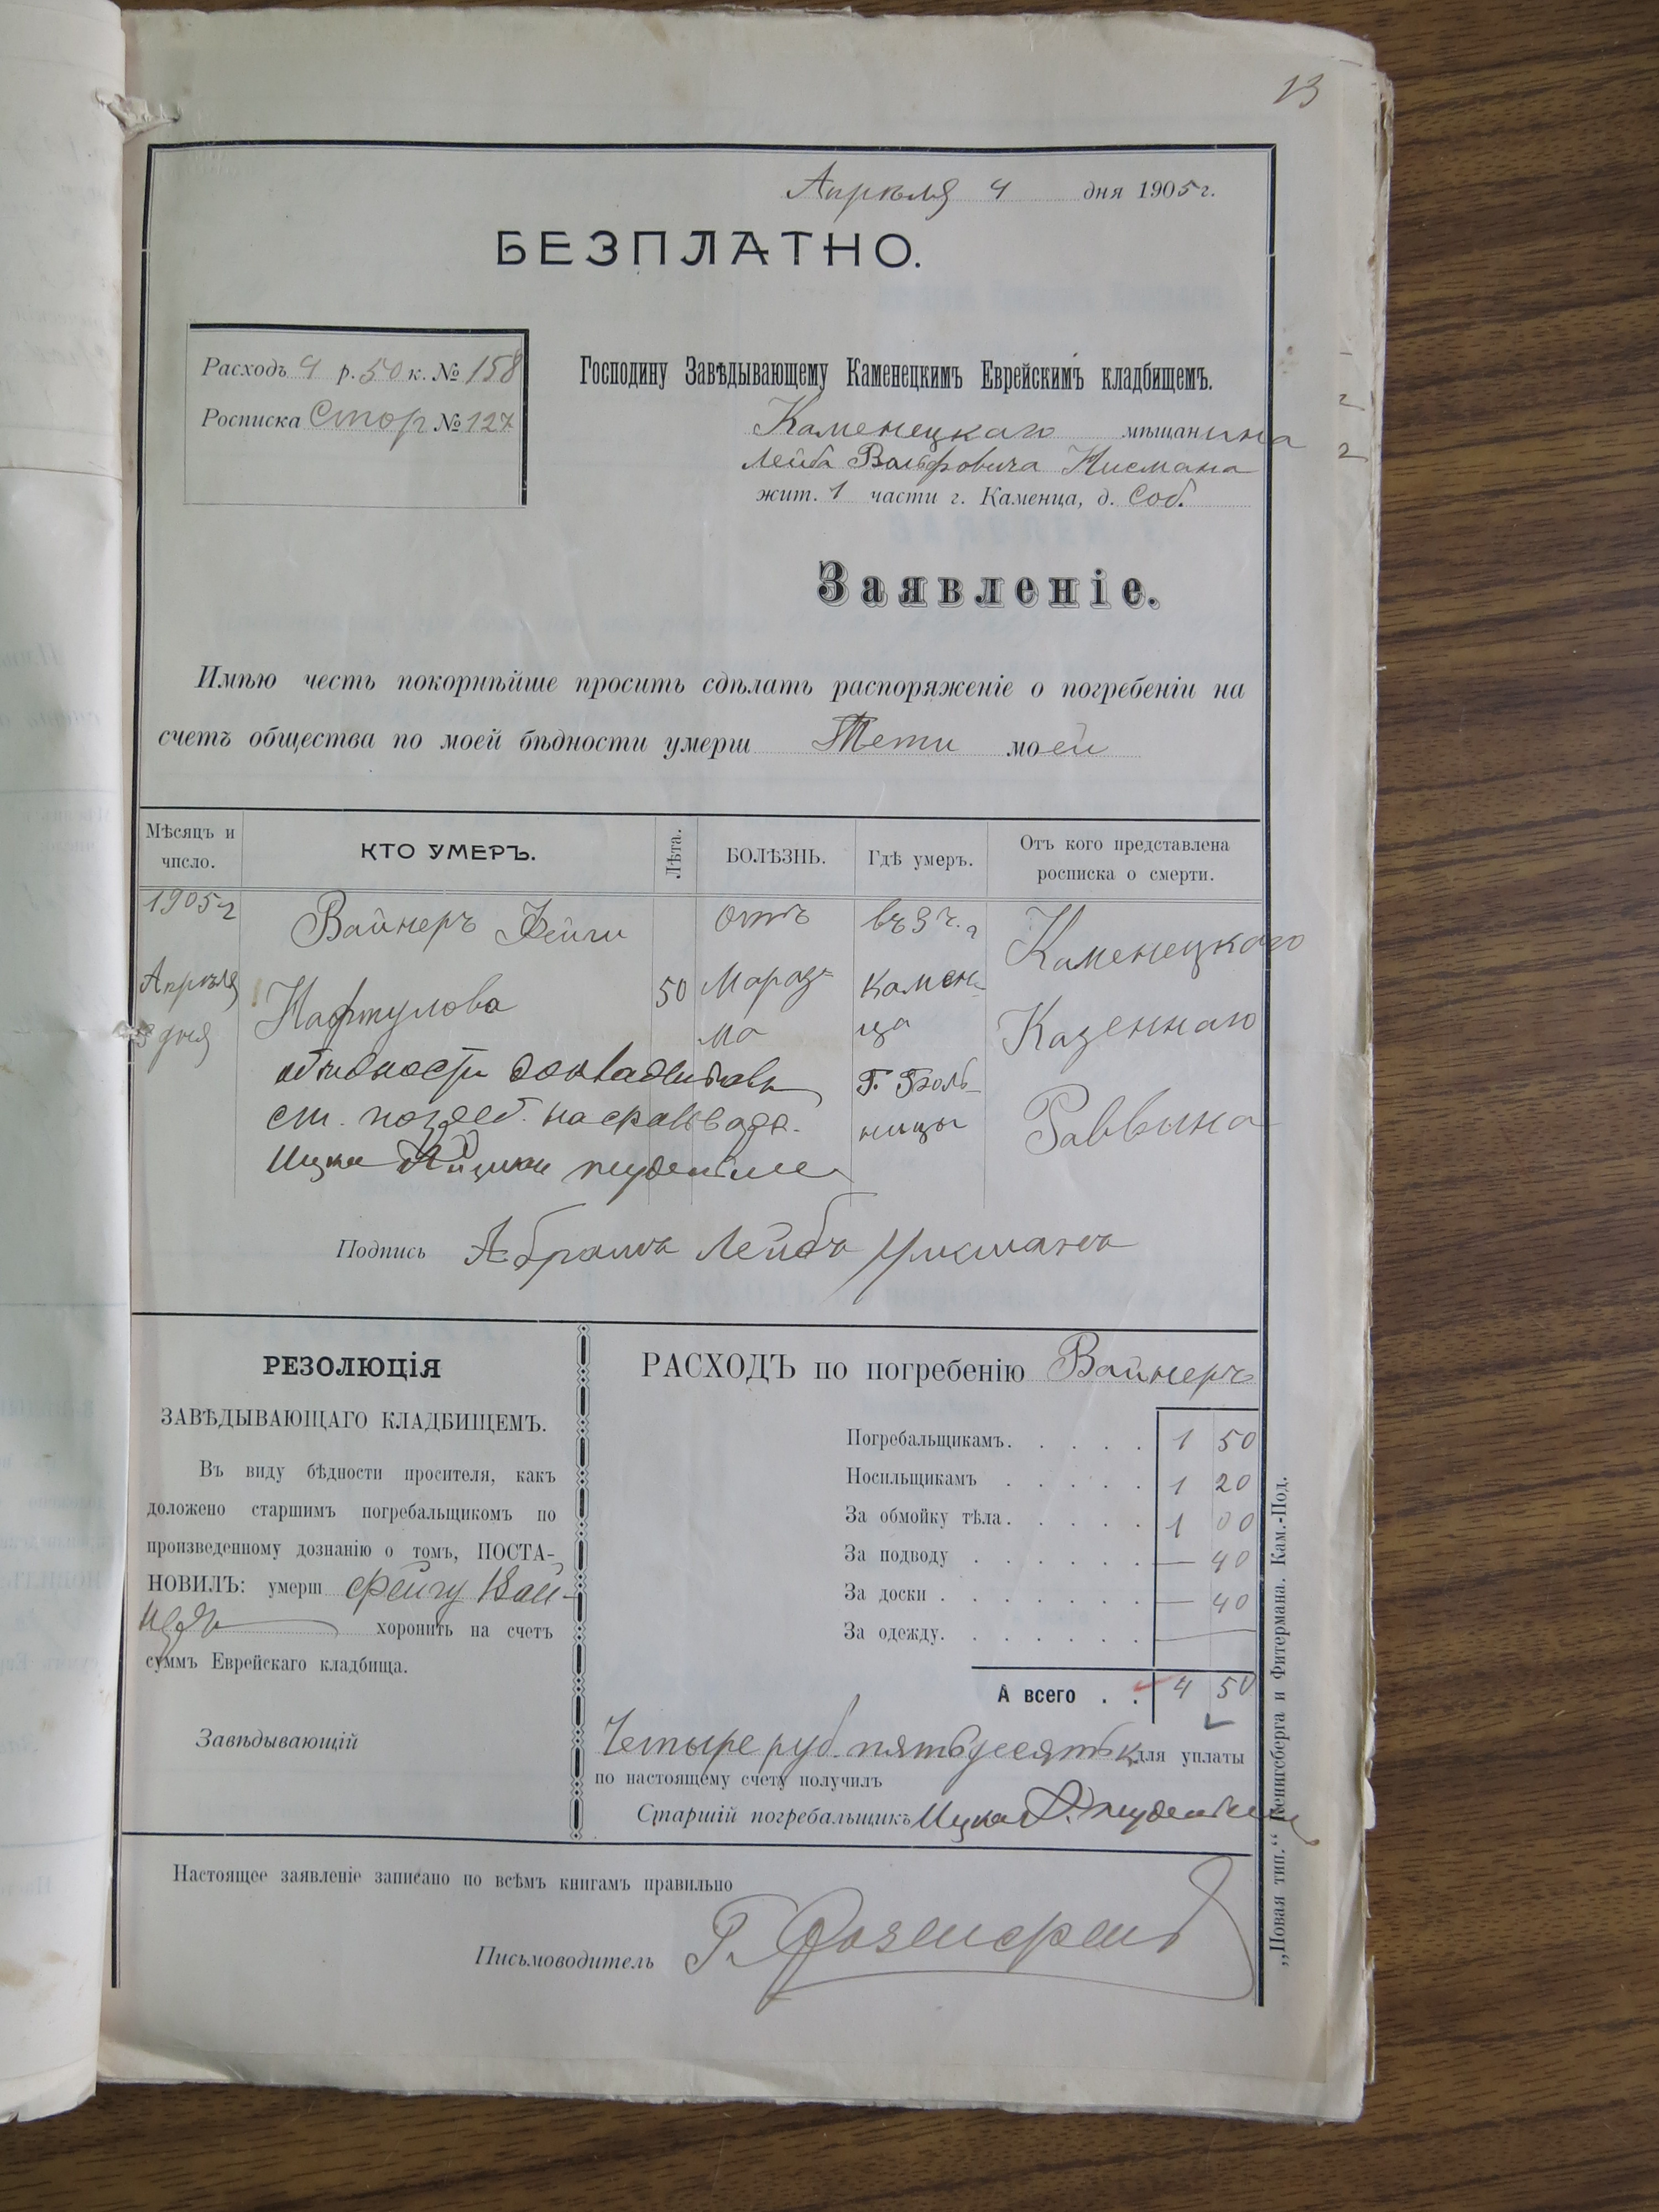 13
Апрѣля 4 дня 1905 г.
БЕЗПЛАТНО.
Расходъ 4 р. 50 к. № 158
Росписка Стор № 127
Господину Завѣдывающему Каменецкимъ Еврейскимъ кладбищемъ.
Каменецкаго мѣщанина
Лейба Вольфовича Нисмана
жит. 1 части г. Каменца, д. Соб.
Заявленіе.
Имѣю честь покорнѣйше просить сдѣлать распоряженіе о погребеніи на
счетъ общества по моей бѣдности умерш Тети моей
Мѣсяцъ и число.
КТО УМЕРЪ.
Лѣта.
БОЛѢЗНЬ.
Гдѣ умеръ.
Отъ кого представлена росписка о смерти.
1905 г
Апрѣля
3 дня
Вайнеръ Фейги
Нафтулова
50
отъ
Мараз-
ма
въ 3 ч. г
Камен-
ца
Г. Боль-
ницы
Каменецкаго
Казеннаго
Раввина
о бѣдности
ст. погреб.
Ицко
Подпись Абрамъ Лейбъ
РЕЗОЛЮЦІЯ
ЗАВѢДЫВАЮЩАГО КЛАДБИЩЕМЪ.
Въ виду бѣдности просителя, какъ
доложено старшимъ погребальщикомъ по
произведенному дознанію о томъ, ПОСТА-
НОВИЛЪ: умерш Фейгу Вай-
неръ хоронить на счетъ
суммъ Еврейскаго кладбища.
Завѣдывающій
РАСХОДЪ по погребенію Вайнеръ
Погребальщикамъ. . . . . 1 50
Носильщикамъ . . . . . 1 20
За обмойку тѣла. . . . . 1 00
За подводу . . . . . . — 40
За доски . . . . . . . — 40
За одежду. . . . . . . —
А всего . . 4 50
Четыре руб. пятьдесятъ к для уплаты
по настоящему счету получилъ
Старшій погребальщикъ Ицко
Настоящее заявленіе записано по всѣмъ книгамъ правильно
Письмоводитель Г. Розенфельд
„Новая тип.“ Кенигсберга и Фитермана. Кам.-Под.